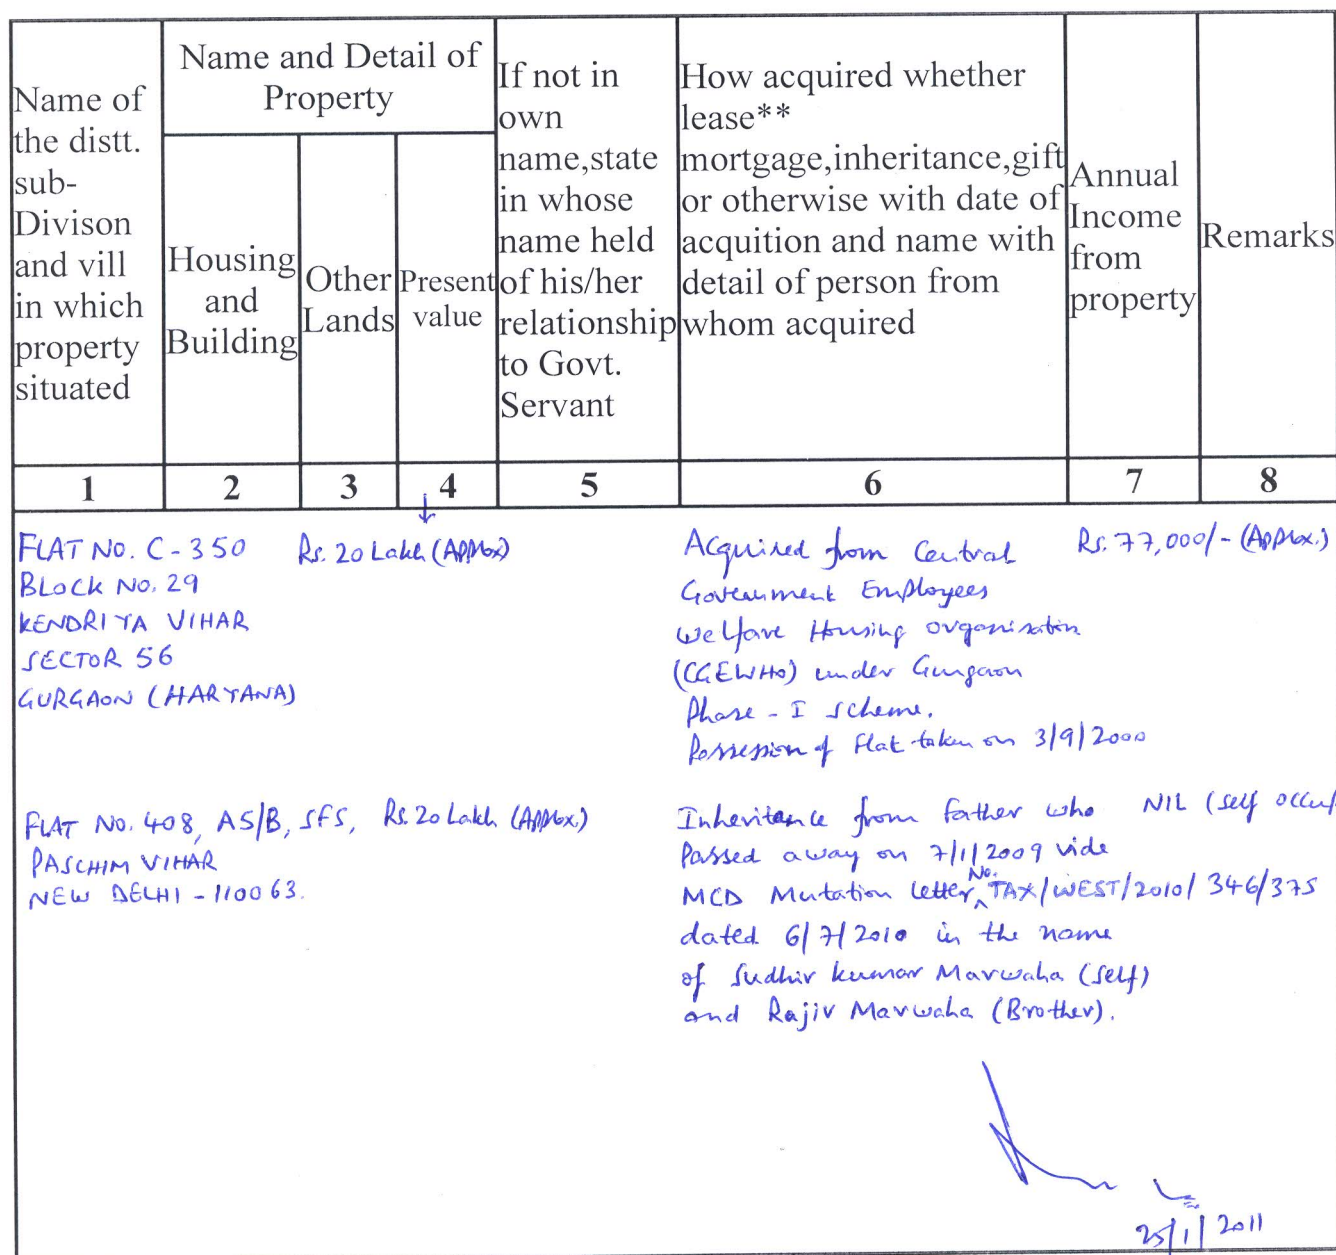 Name of
the distt.
sub-
Divison
and vill
in which
property
situated
Name and Detail of
Property
Housing
and
Building
Other
Lands
Present
value
If not in
own
name,state
in whose
name held
of his/her
relationship
to Govt.
Servant
How acquired whether
lease**
mortgage,inheritance,gift
or otherwise with date of
acquition and name with
detail of person from
whom acquired
Annual
Income
from
property
Remarks
1 2 3 4 5 6 7 8
FLAT NO. C-350 Rs. 20 Lakh (Approx)
BLOCK NO. 29
KENDRIYA VIHAR
SECTOR 56
GURGAON (HARYANA)
Acquired from Central
Government Employees
Welfare Housing Organisation
(CGEWHO) under Gurgaon
Phase - I scheme.
Possession of Flat taken on 3/9/2000
Rs. 77,000/- (Approx.)
FLAT NO. 408, A5/B, SFS, Rs. 20 Lakh (Approx)
PASCHIM VIHAR
NEW DELHI - 110063.
Inheritance from father who
Passed away on 7/1/2009 vide
MCD Mutation letter No. TAX/WEST/2010/346/375
dated 6/7/2010 in the name
of Sudhir kumar Marwaha (self)
and Rajiv Marwaha (Brother).
NIL (self occup
25/1/2011